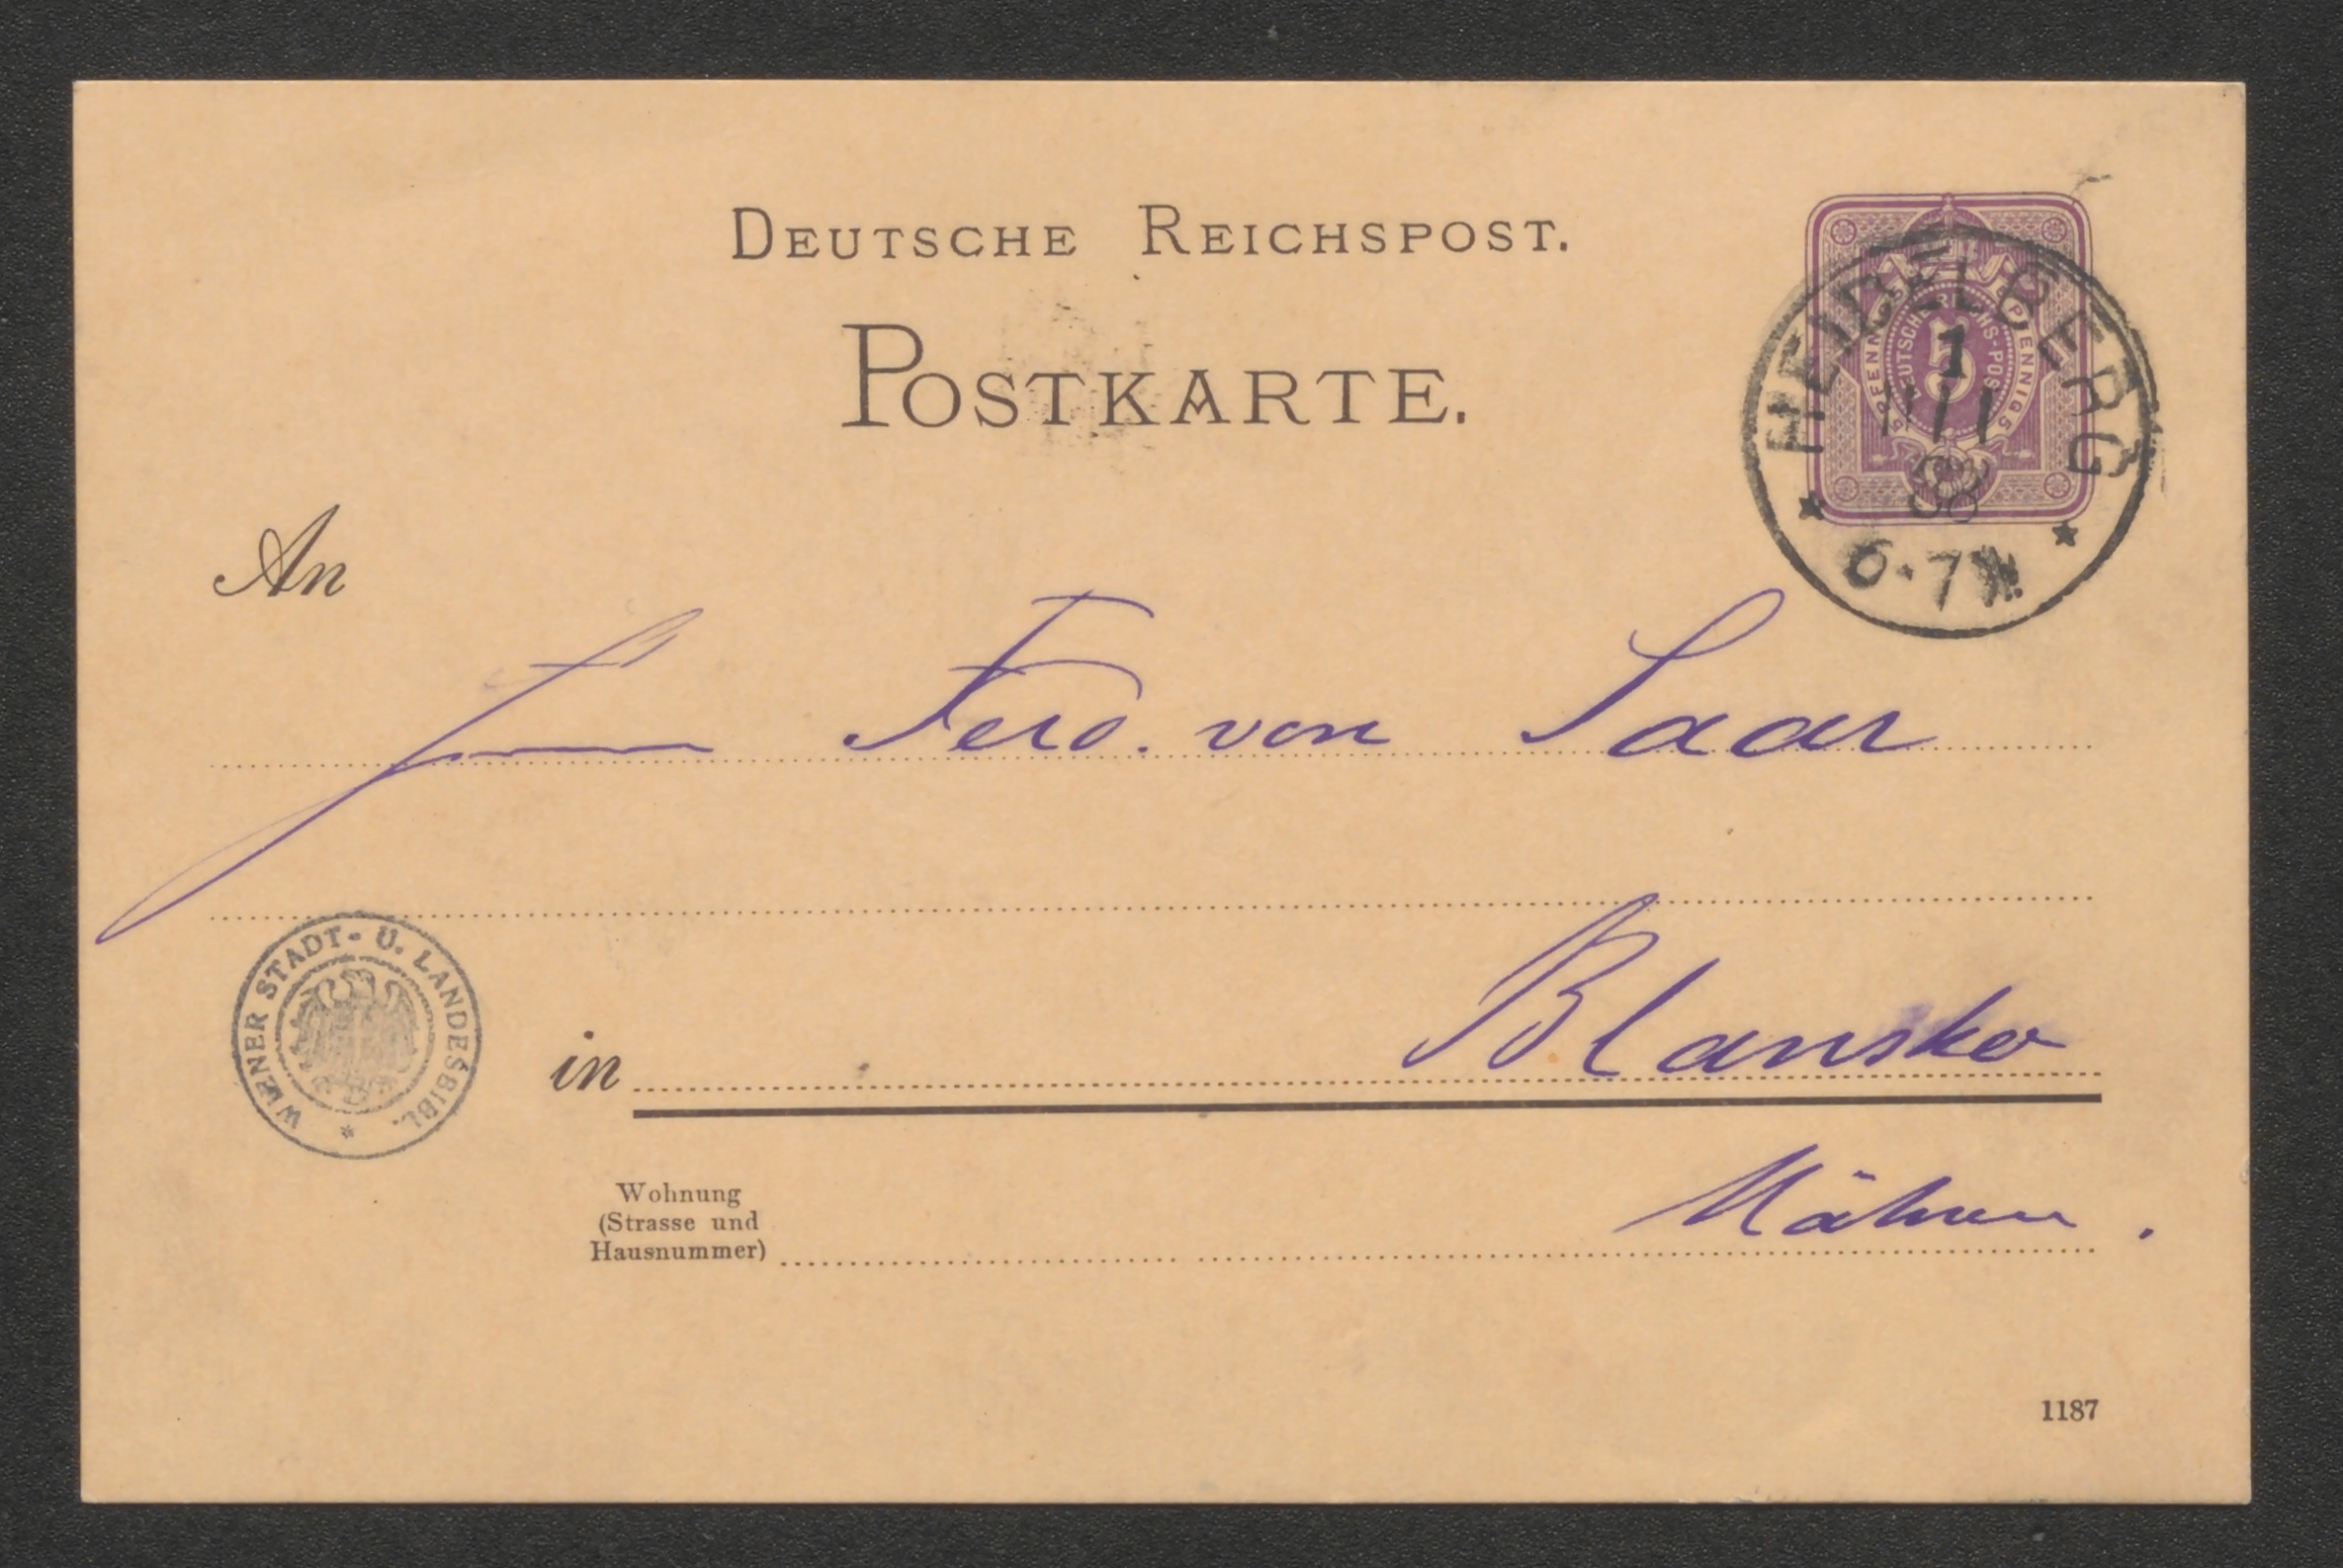 DEUTSCHE REICHSPOST.
POSTKARTE.
5 PFENNIG 5 PFENNIG 5
DEUTSCHE REICHS-POST
HEIDELBERG
1
III
88
6-7 N.
An
Herrn Ferd. von Saar
WIENER STADT- U. LANDESBIBL.
in Blansko
Wohnung
(Strasse und
Hausnummer)
Mähren.
1187